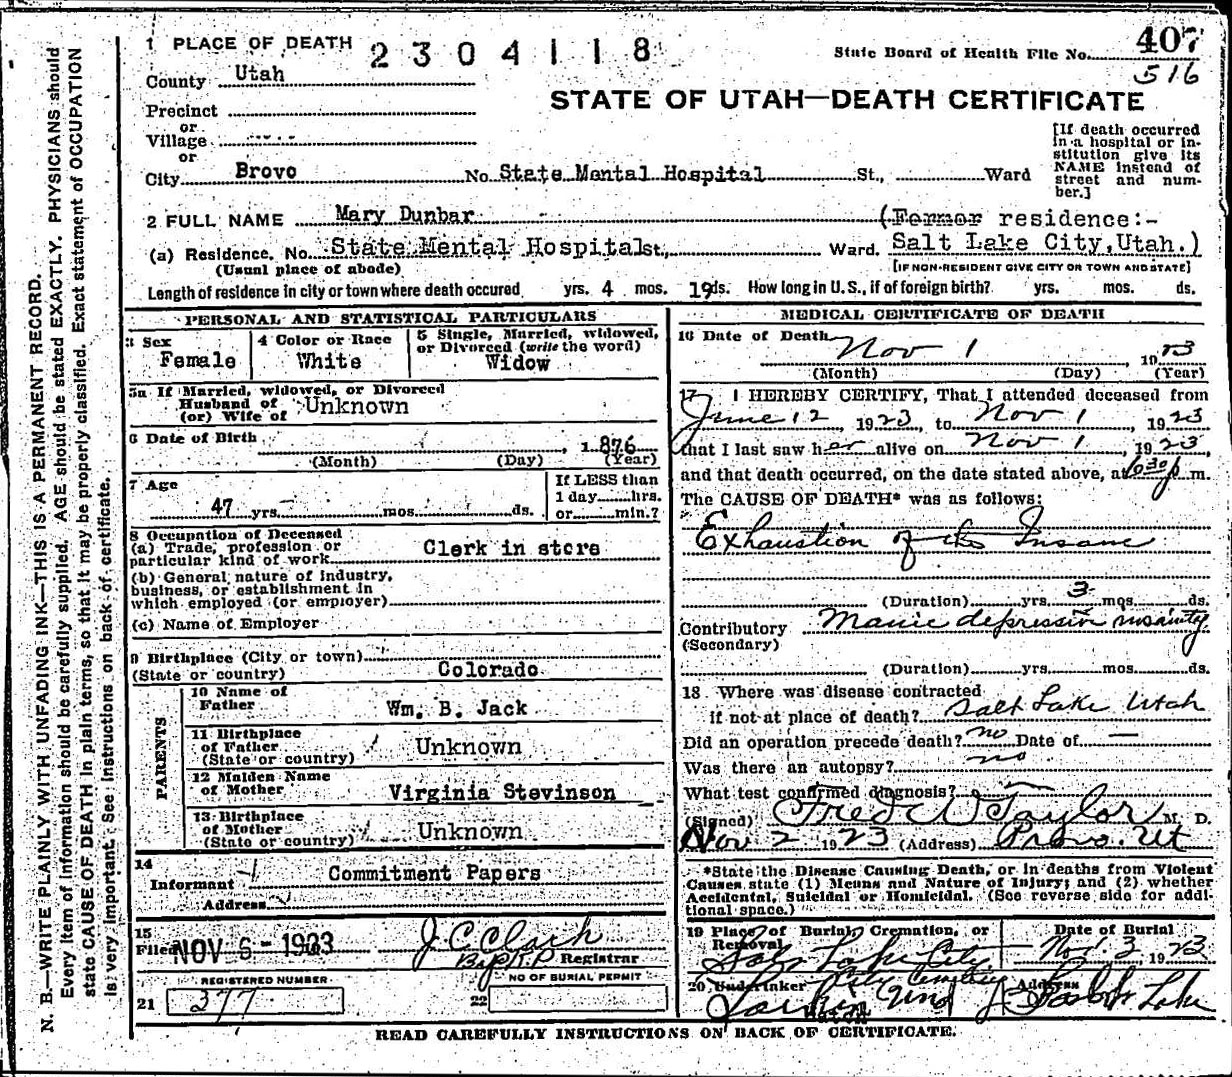 1 PLACE OF DEATH 2304118 State Board of Health File No. 407
516
County Utah
STATE OF UTAH—DEATH CERTIFICATE
Precinct
or
Village
or
City Brovo No State Mental Hospital St., Ward
[If death occurred
in a hospital or in-
stitution give its
NAME instead of
street and num-
ber.]
2 FULL NAME Mary Dunbar (Former residence:-
(a) Residence. No. State Mental Hospital St., Ward. Salt Lake City, Utah.)
(Usual place of abode) [IF NON-RESIDENT GIVE CITY OR TOWN AND STATE]
Length of residence in city or town where death occured yrs. 4 mos. 19 ds. How long in U. S., if of foreign birth? yrs. mos. ds.
PERSONAL AND STATISTICAL PARTICULARS
3 Sex
Female
4 Color or Race
White
5 Single, Married, widowed,
or Divorced (write the word)
Widow
5a If Married, widowed, or Divorced
Husband of
(or) Wife of Unknown
6 Date of Birth 1876
(Month) (Day) (Year)
7 Age
47 yrs. mos. ds.
If LESS than
1 day hrs.
or min.?
8 Occupation of Deceased
(a) Trade, profession or
particular kind of work Clerk in store
(b) General nature of industry,
business, or establishment in
which employed (or employer)
(c) Name of Employer
9 Birthplace (City or town)
(State or country) Colorado
PARENTS
10 Name of
Father Wm. B. Jack
11 Birthplace
of Father
(State or country) Unknown
12 Maiden Name
of Mother Virginia Stevinson
13 Birthplace
of Mother
(State or country) Unknown
14
Informant Commitment Papers
Address
15
Filed NOV 5 - 1923 J C Clark
Registrar
REGISTERED NUMBER NO OF BURIAL PERMIT
21 377 22
MEDICAL CERTIFICATE OF DEATH
16 Date of Death Nov 1 1923
(Month) (Day) (Year)
17 I HEREBY CERTIFY, That I attended deceased from
June 12 1923, to Nov 1, 1923
that I last saw her alive on Nov 1, 1923,
and that death occurred, on the date stated above, at 630 p m.
The CAUSE OF DEATH* was as follows:
Exhaustion of the Insane
(Duration) yrs. 3 mos. ds.
Contributory Manic depressive insanity
(Secondary)
(Duration) yrs. mos. ds.
18 Where was disease contracted
if not at place of death? Salt Lake Utah
Did an operation precede death? no Date of —
Was there an autopsy? no
What test confirmed diagnosis? —
(Signed) Fred W Taylor M. D.
Nov 2 1923 (Address) Provo. Ut
*State the Disease Causing Death, or in deaths from Violent
Causes state (1) Means and Nature of Injury; and (2) whether
Accidental, Suicidal or Homicidal. (See reverse side for addi-
tional space.)
19 Place of Burial, Cremation, or
Removal
Salt Lake City
Date of Burial
Nov 3 1923
20 Undertaker Address
Salt Lake
READ CAREFULLY INSTRUCTIONS ON BACK OF CERTIFICATE.
N. B.—WRITE PLAINLY WITH UNFADING INK—THIS IS A PERMANENT RECORD.
Every item of information should be carefully supplied. AGE should be stated EXACTLY. PHYSICIANS should
state CAUSE OF DEATH in plain terms, so that it may be properly classified. Exact statement of OCCUPATION
is very important. See instructions on back of certificate.